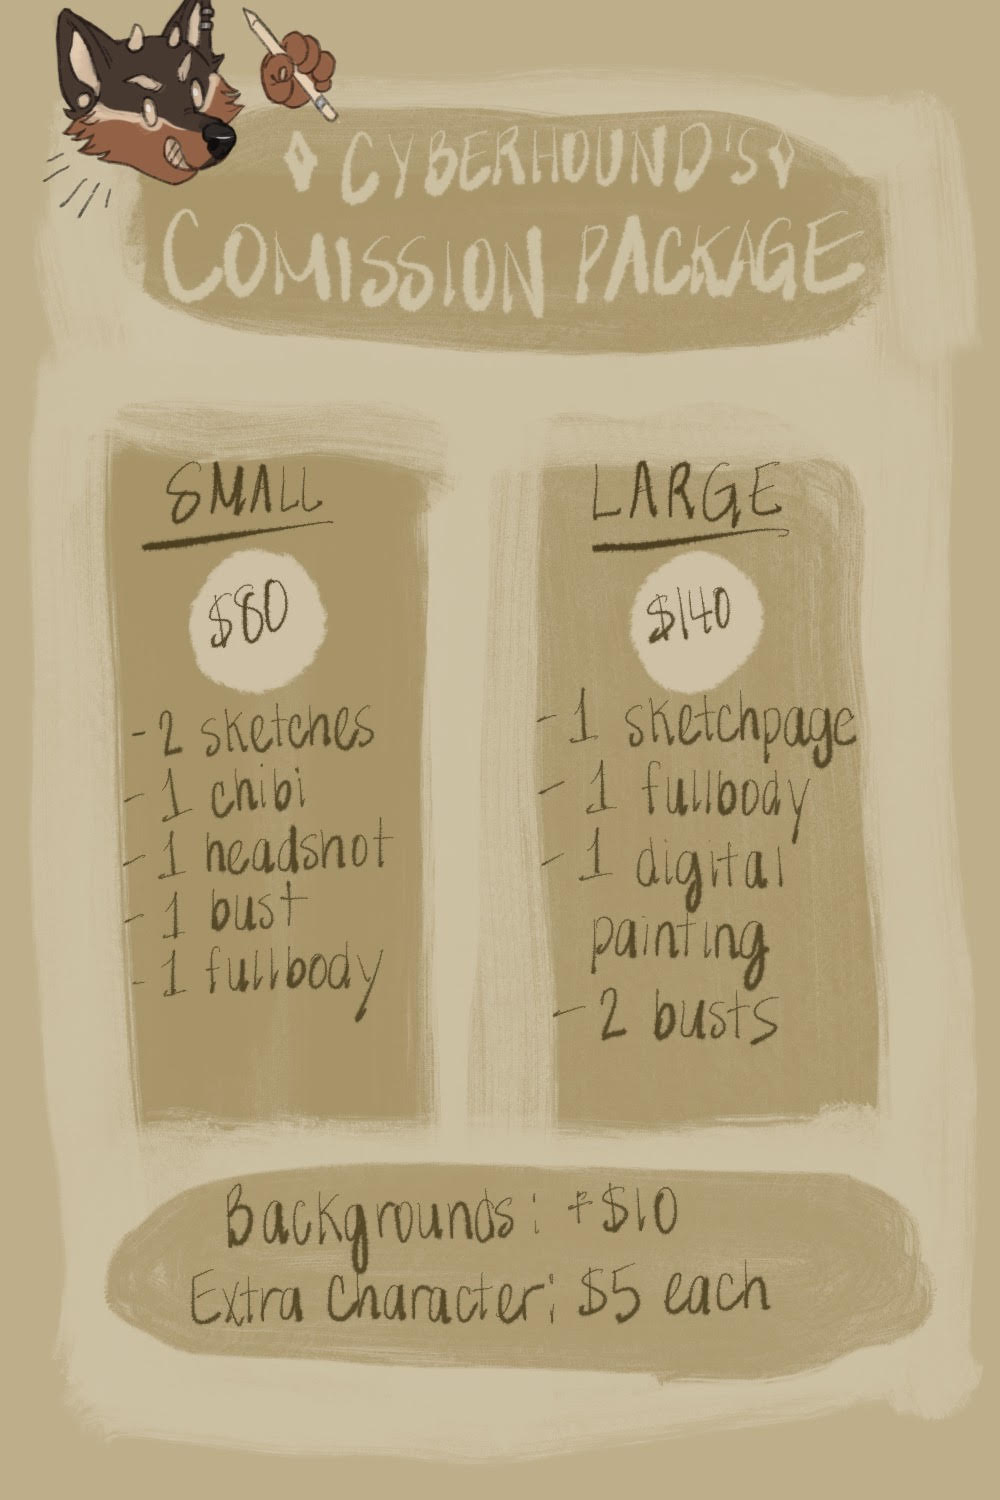 CYBERHOUND'S
COMISSION PACKAGE
SMALL
$80
- 2 sketches
- 1 chibi
- 1 headshot
- 1 bust
- 1 fullbody
LARGE
$140
- 1 sketchpage
- 1 fullbody
- 1 digital
painting
- 2 busts
Backgrounds: +$10
Extra Character: $5 each